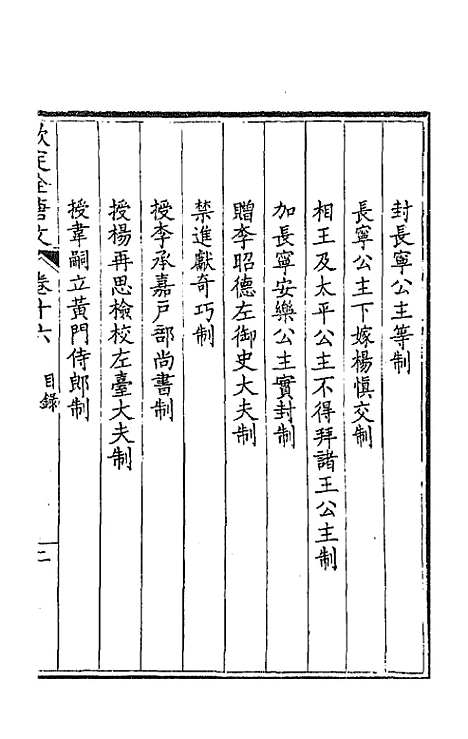 封長寧公主等制
長寧公主下嫁楊慎交制
相王及太平公主不得拜諸王公主制
加長寧安樂公主實封制
贈李昭德左御史大夫制
禁進獻奇巧制
授李承嘉戸部尚書制
授楊再思檢校左臺大夫制
授韋嗣立黃門侍郎制
欽定全唐文 卷十六 目錄 二